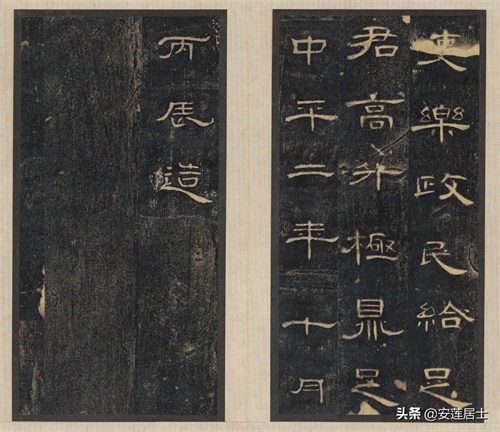 吏樂政民給足
君高升極鼎足
中平二年十月
丙辰造
头条 @安莲居士